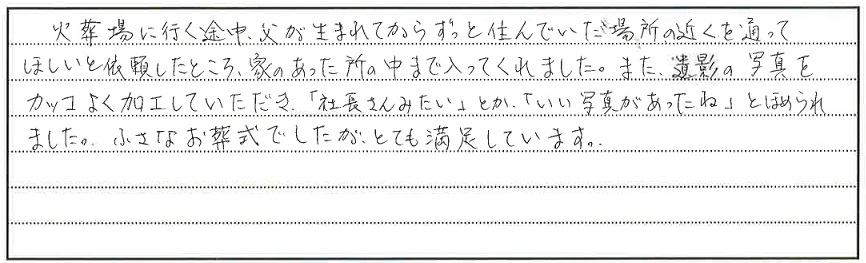 火葬場に行く途中、父が生まれてからずっと住んでいた場所の近くを通って
ほしいと依頼したところ、家のあった所の中まで入ってくれました。また、遺影の写真を
カッコよく加工していただき、「社長さんみたい」とか、「いい写真があったね」とほめられ
ました。小さなお葬式でしたが、とても満足しています。